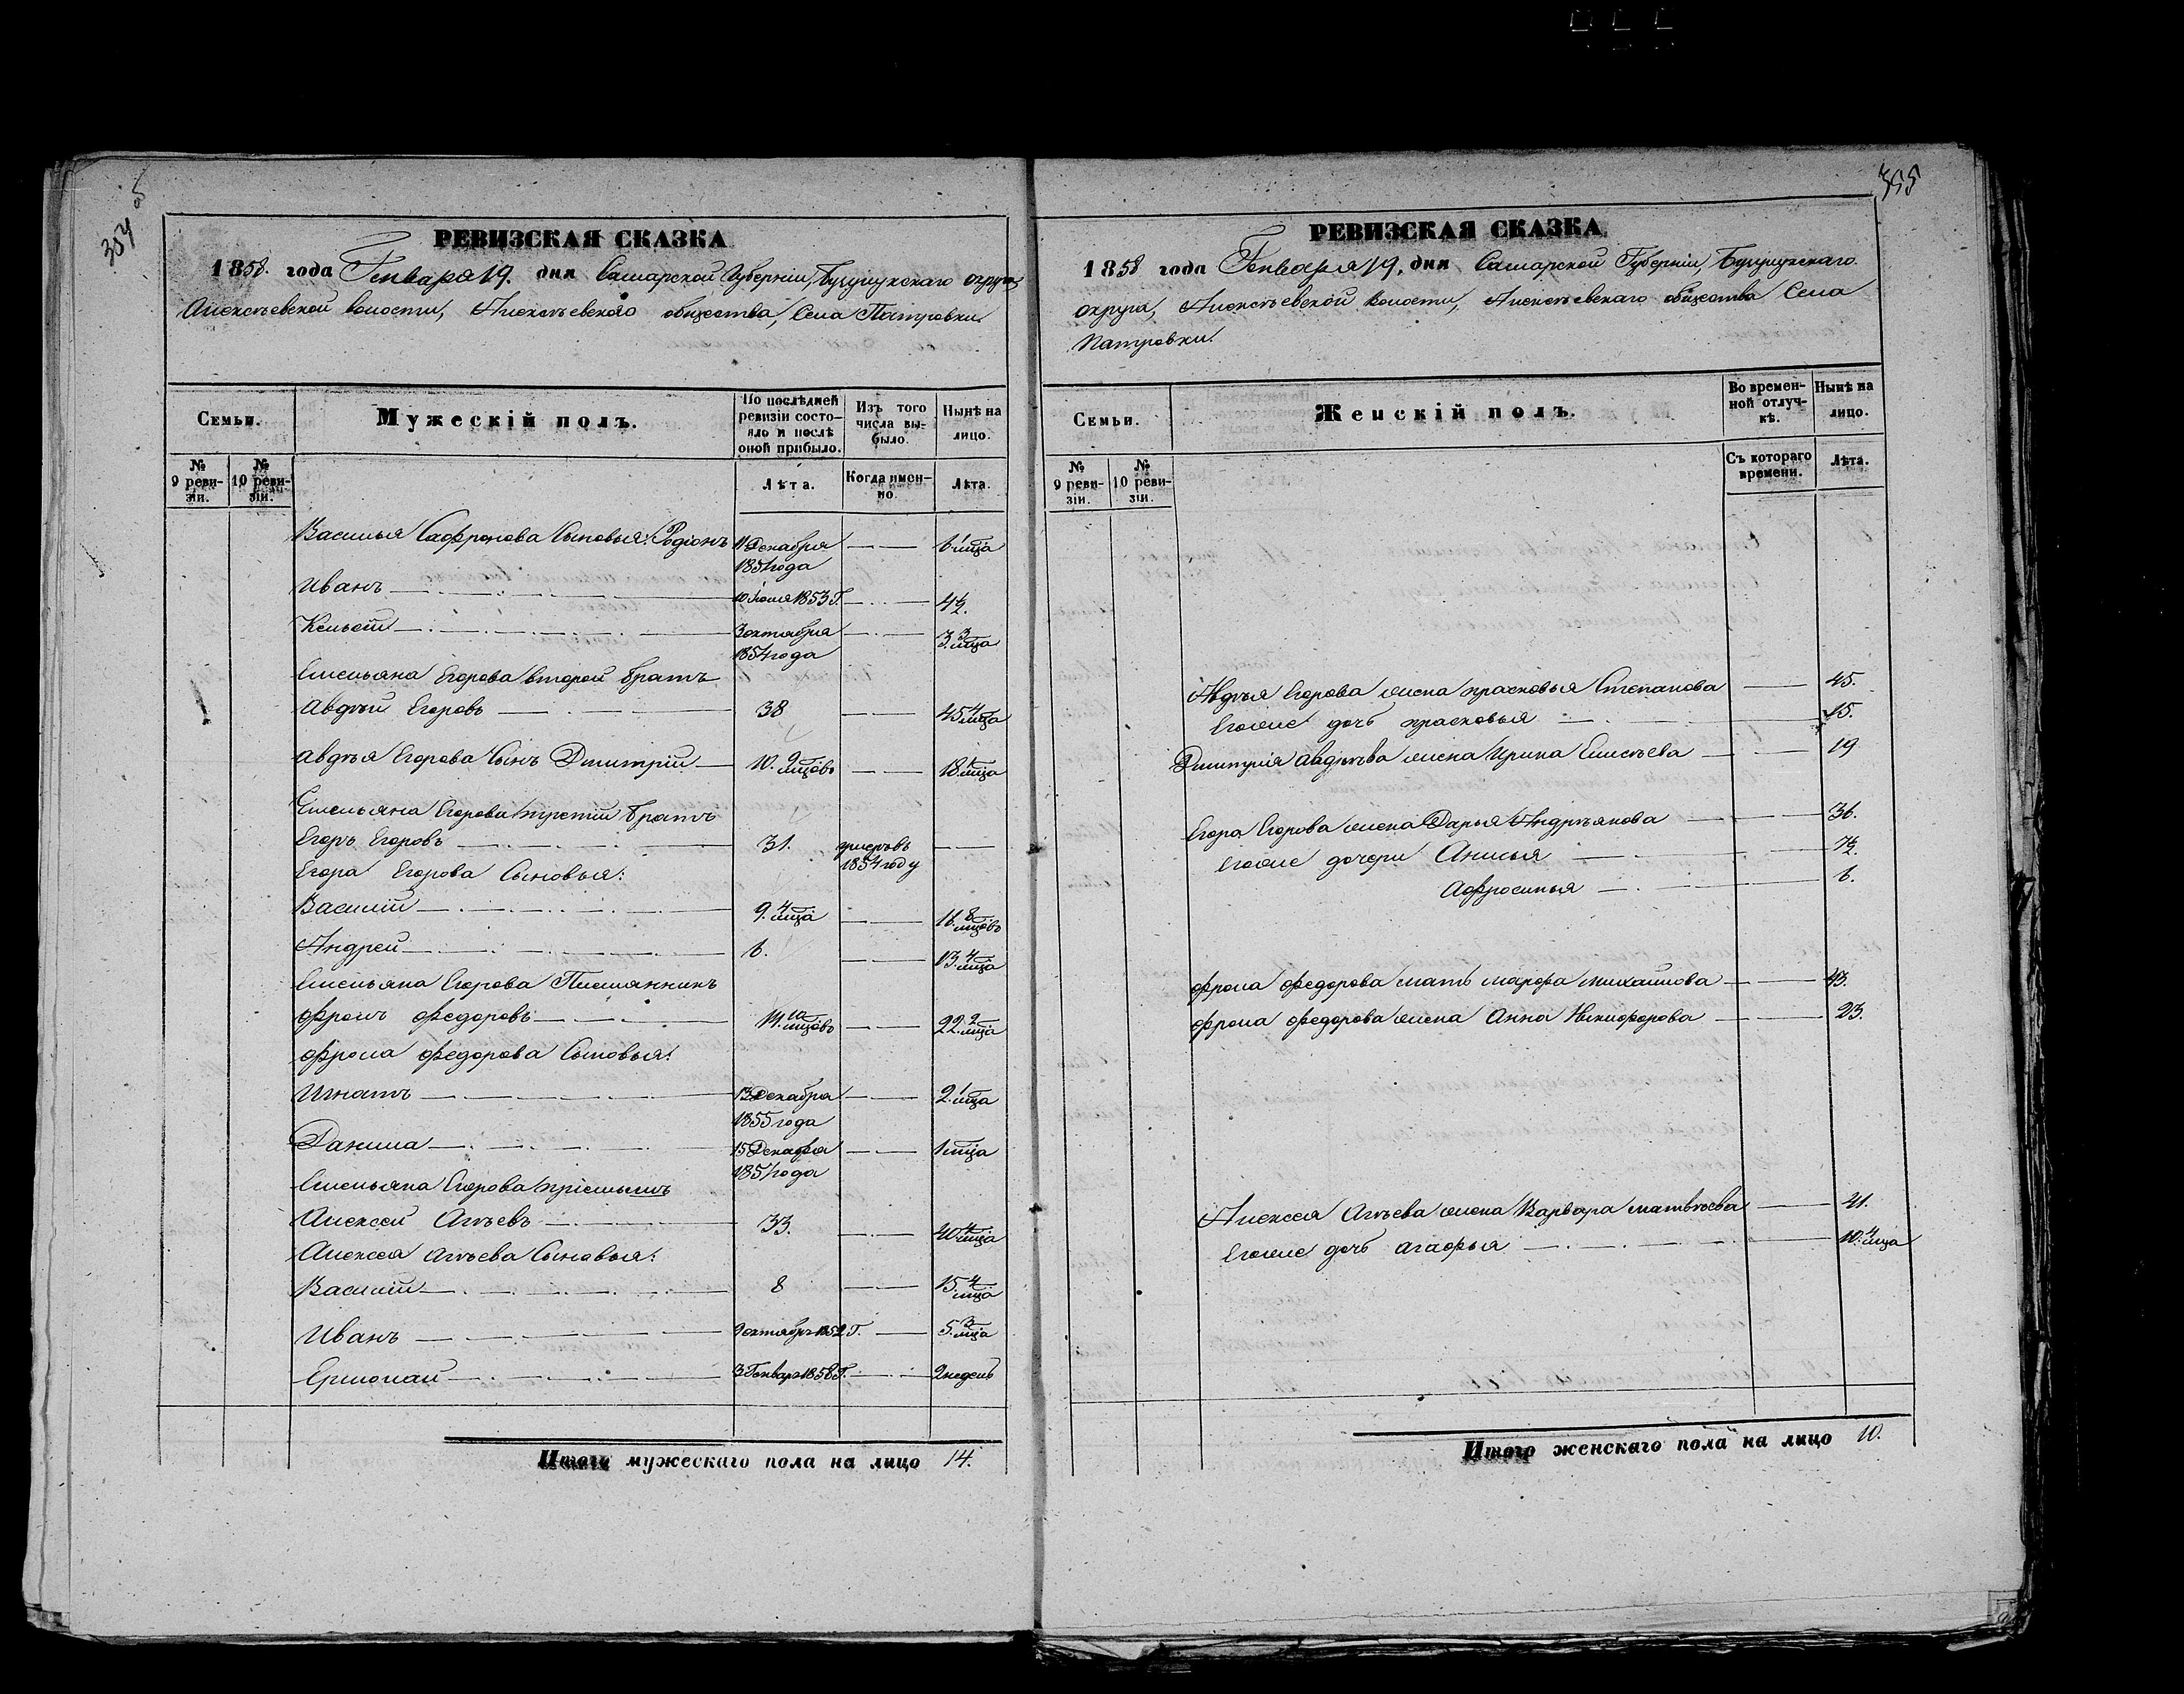 354
РЕВИЗСКАЯ СКАЗКА
1858. года Генваря 19. дня Самарской Губерніи, Бузулукскаго округа,
Алексѣевской волости, Алексѣевскаго общества, Села Патровки.
Семьи.
Мужескій полъ.
По послѣдней ревизіи состояло и послѣ оной прибыло.
Изъ того числа выбыло.
Нынѣ на лицо.
№ 9 ревизіи.
№ 10 ревизіи.
Лѣта.
Когда именно.
Лѣта.
Василья Сафронова Сыновья: Родіонъ 11 Декабря 1851 года — 6 1/мца
Иванъ — 10 Июля 1853 Г. — 4 1/2.
— 3 октября 1854 года — 3. 3/мца
Емельяна Егорова второй братъ
Авдѣй Егоровъ — 38 — 45 4/мца
Авдѣя Егорова Сынъ Дмитрій — 10. 9/мцовъ — 18. 1/мца
Емельяна Егорова третій братъ
Егоръ Егоровъ — 31. умеръ въ 1854 году —
Егора Егорова Сыновья:
Василій — 9. 4/мца — 16. 8/мцовъ
Андрей — 6. — 13. 4/мца
Емельяна Егорова Племянникъ
Фролъ Федоровъ — 14. 10/мцовъ — 22. 2/мца
Фрола Федорова Сыновья:
Игнатъ — 13 Декабря 1855 года — 2. 1/мца
Данила — 15 Декабря 1857 года — 1 мца
Емельяна Егорова пріемышъ
Алексей Агѣевъ — 33. — 40 4/мца
Алексея Агѣева Сыновья:
Василій — 8 — 15. 4/мца
Иванъ — 9 октября 1852 Г. — 5. 3/мца
Ермолай — 3 Генваря 1858 Г. — 2 недель
Итого мужескаго пола на лицо 14.
355
РЕВИЗСКАЯ СКАЗКА
1858 года Генваря 19, дня Самарской Губерніи, Бузулукскаго
округа, Алексѣевской волости, Алексѣевскаго общества Села
Патровки.
Семьи.
Женскій полъ.
Во временной отлучкѣ.
Нынѣ на лицо.
№ 9 ревизіи.
№ 10 ревизіи.
Съ котораго времени.
Лѣта.
Авдѣя Егорова жена Прасковья Степанова — 45.
Егоже дочь Прасковья — 15.
Дмитрія Авдѣева жена Ирина Елисѣева — 19
Егора Егорова жена Дарья Андрѣянова — 36.
Егоже дочери Анисья — 7 1/2.
Афросинья — 6.
Фрола Федорова мать Марфа Михайлова — 43.
Фрола Федорова жена Анна Никифорова — 23.
Алексея Агѣева жена Варвара Матвѣева — 41.
Егоже дочь Агафья — 10. 4/мца
Итого женскаго пола на лицо 10.